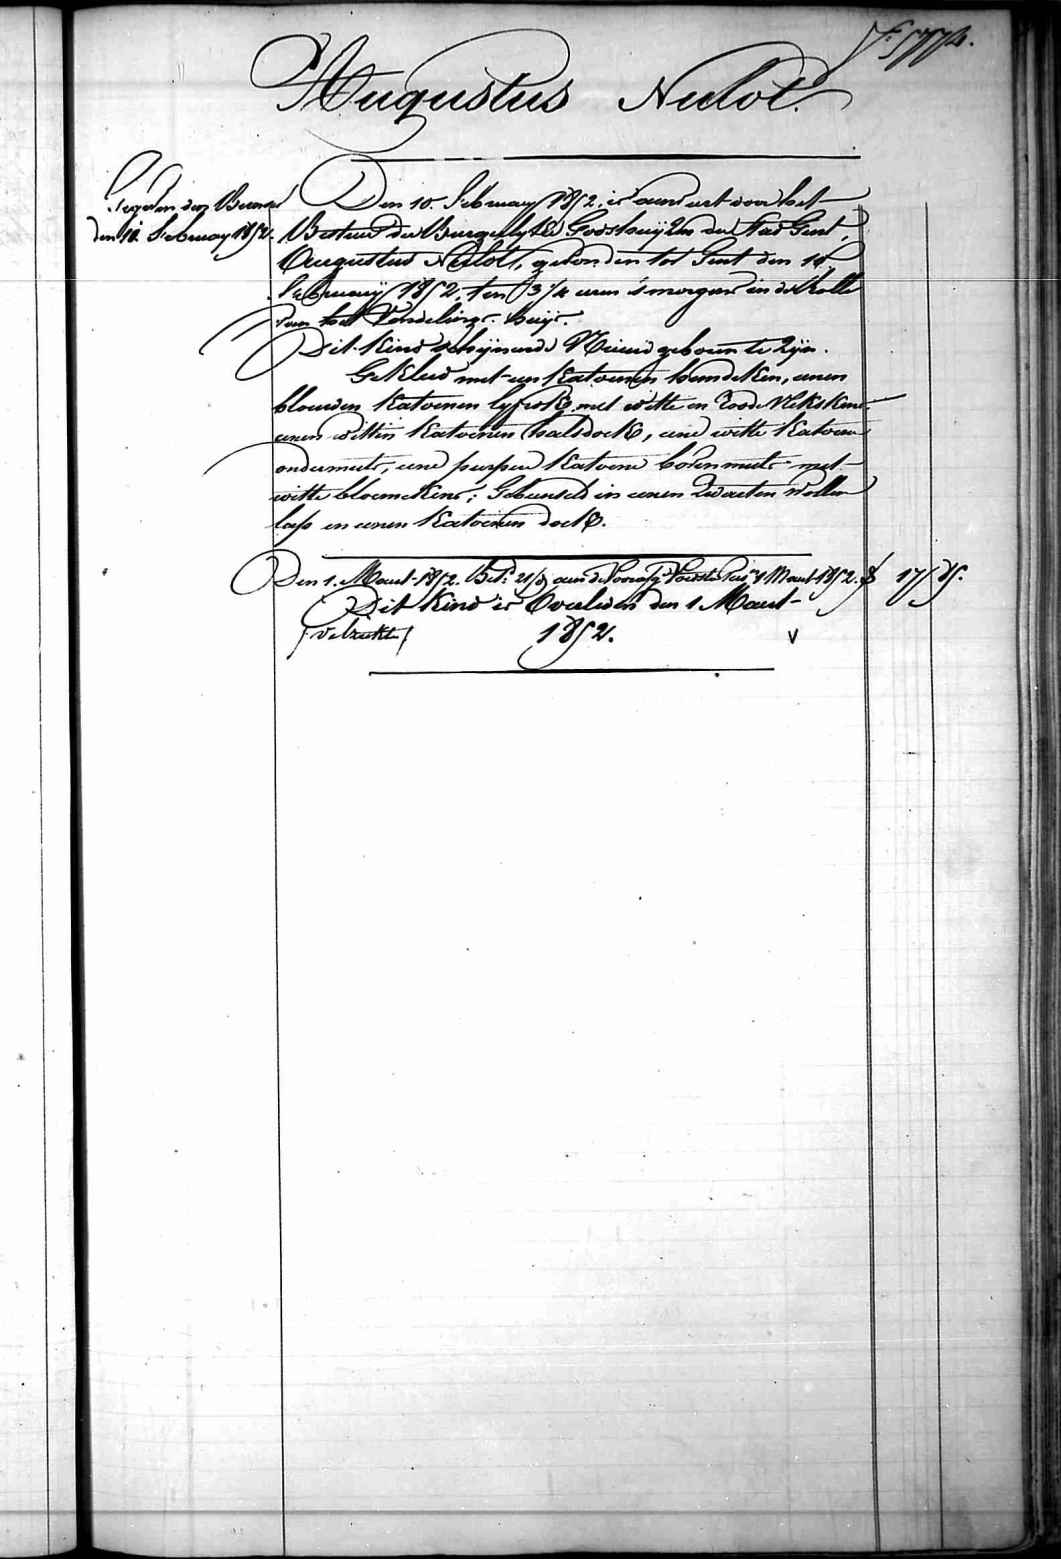 Augustus Nulot.
Den 10. February 1852. is aenveert door het
Bestuer der Burgerlyke Godshuyzen der Stad Gent,
Augustus Nulot, gevonden tot Gent den 10
February 1852, ten 3 1/4 uren 's morgens in de Rolle
van het Vondelings-huys.
Dit kind schynende Nieuwgeboren te zyn.
Gekleed met een katoenen hemdeken, eenen
blouwen katoenen lyfrok met witte en roode vlekskens,
eenen witten katoenen halsdoek, eene witte katoene
ondermuts, eene purper katoene bovenmuts met
witte bloemekens; Gebunseld in eenen zwarten wollen
lap en eenen katoenen doek.
Den 1. Maert 1852. 1 Maert 1852. 17/85.
Dit kind is Overleden den 1 Maert
1852.